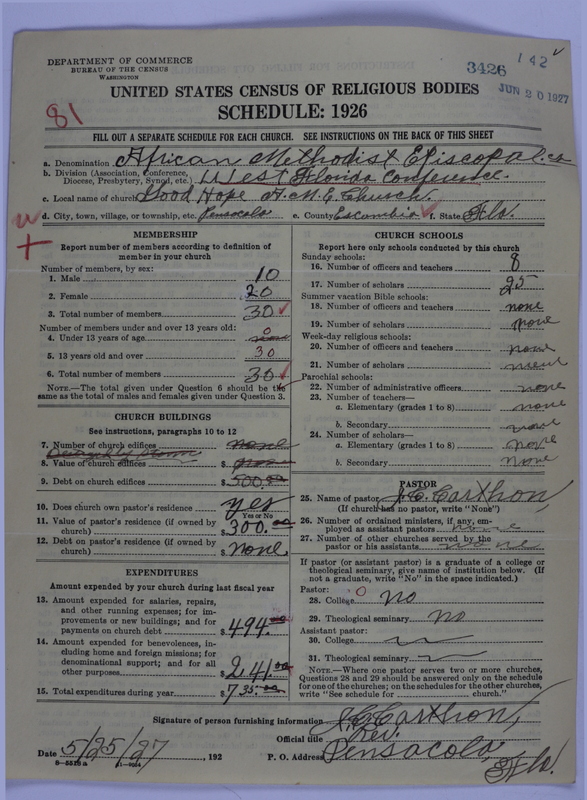 DEPARTMENT OF COMMERCE
BUREAU OF THE CENSUS
WASHINGTON
3426
142
JUN 20 1927
81
UNITED STATES CENSUS OF RELIGIOUS BODIES
SCHEDULE: 1926
FILL OUT A SEPARATE SCHEDULE FOR EACH CHURCH. SEE INSTRUCTIONS ON THE BACK OF THIS SHEET
a. Denomination African Methodist Episcopal
b. Division (Association, Conference, Diocese, Presbytery, Synod, etc.) West Florida Conference.
c. Local name of church Good Hope A.M.E. Church.
d. City, town, village, or township, etc. Pensacola e. County Escambia f. State Fla.
MEMBERSHIP
Report number of members according to definition of
member in your church
Number of members, by sex:
1. Male 10
2. Female 20
3. Total number of members 30
Number of members under and over 13 years old:
4. Under 13 years of age 0
5. 13 years old and over 30
6. Total number of members 30
NOTE.—The total given under Question 6 should be the
same as the total of males and females given under Question 3.
CHURCH BUILDINGS
See instructions, paragraphs 10 to 12
7. Number of church edifices none
8. Value of church edifices $
9. Debt on church edifices $ 500.00
10. Does church own pastor's residence? yes
Yes or No
11. Value of pastor's residence (if owned by
church) $ 300.00
12. Debt on pastor's residence (if owned by
church) $ none
EXPENDITURES
Amount expended by your church during last fiscal year
13. Amount expended for salaries, repairs,
and other running expenses; for im-
provements or new buildings; and for
payments on church debt $ 494.00
14. Amount expended for benevolences, in-
cluding home and foreign missions; for
denominational support; and for all
other purposes $ 241.00
15. Total expenditures during year $ 735.00
CHURCH SCHOOLS
Report here only schools conducted by this church
Sunday schools:
16. Number of officers and teachers 8
17. Number of scholars 25
Summer vacation Bible schools:
18. Number of officers and teachers none
19. Number of scholars none
Week-day religious schools:
20. Number of officers and teachers none
21. Number of scholars
Parochial schools:
22. Number of administrative officers none
23. Number of teachers—
a. Elementary (grades 1 to 8) none
b. Secondary none
24. Number of scholars—
a. Elementary (grades 1 to 8) none
b. Secondary none
PASTOR
25. Name of pastor J. C. Carthon,
(If church has no pastor, write "None")
26. Number of ordained ministers, if any, em-
ployed as assistant pastors none
27. Number of other churches served by the
pastor or his assistants none
If pastor (or assistant pastor) is a graduate of a college or
theological seminary, give name of institution below. (If
not a graduate, write "No" in the space indicated.)
Pastor:
28. College 0 no
29. Theological seminary no
Assistant pastor:
30. College
31. Theological seminary
NOTE.—Where one pastor serves two or more churches,
Questions 28 and 29 should be answered only on the schedule
for one of the churches; on the schedules for the other churches,
write "See schedule for church."
Signature of person furnishing information J. C. Carthon,
Official title Rev.
Date 5/25/27, 192 P. O. Address Pensacola, Fla.